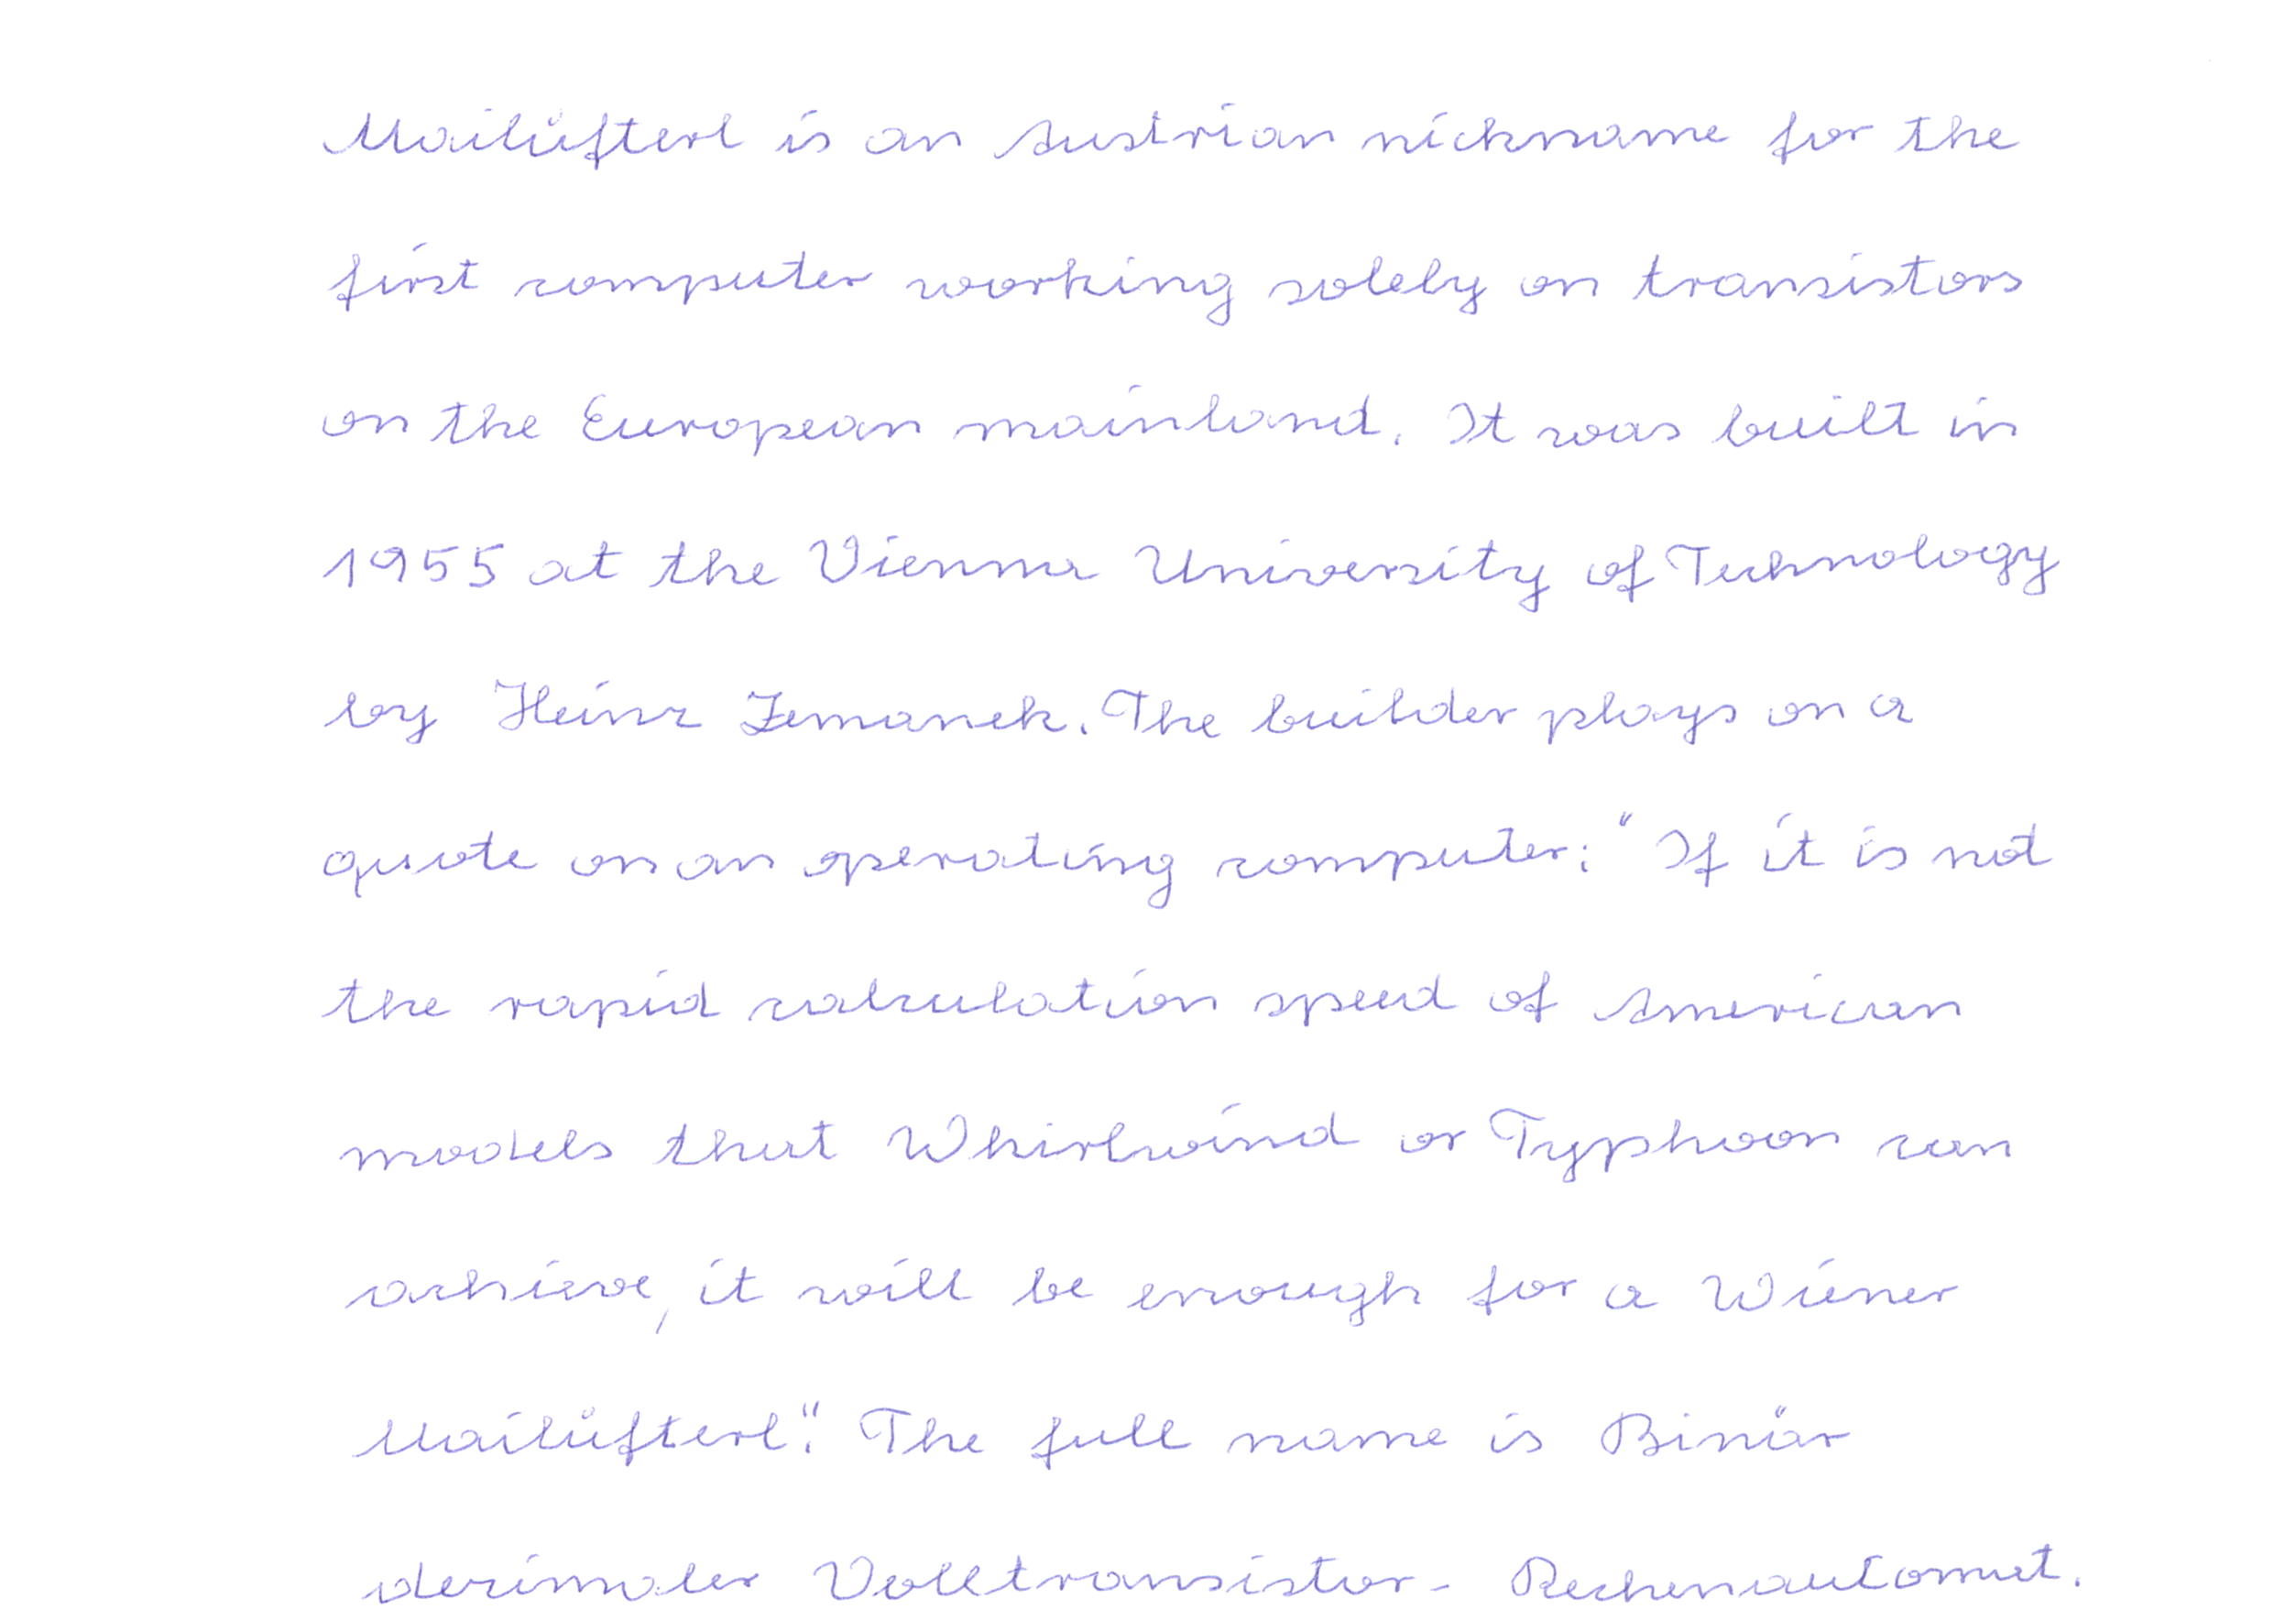 Mailüfterl is an Austrian nickname for the
first computer working solely on transistors
on the European mainland. It was built in
1955 at the Vienna University of Technology
by Heinz Zemanek. The builder plays on a
quote on an operating computer: "If it is not
the rapid calculation speed of American
models that Whirlwind or Typhoon can
achieve, it will be enough for a Wiener
Mailüfterl". The full name is Binär
dezimaler Volltransistor-Rechenautomat.